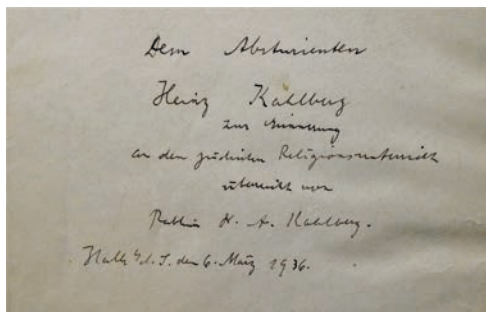 Dem Abiturienten
Heinz Kahlberg
zur Erinnerung
an den jüdischen Religionsunterricht
überreicht von
Rabbiner Dr. A. Kahlberg.
Halle a/d. S. den 6. März 1936.